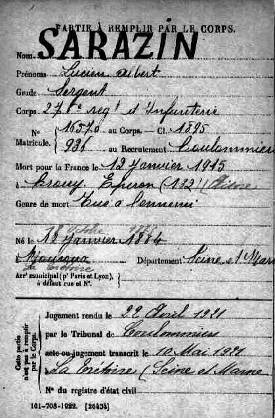 PARTIE À REMPLIR PAR LE CORPS.
Nom SARAZIN
Prénoms Lucien Albert
Grade Sergent
Corps 276e regt d'Infanterie
N° 16570 au Corps. — Cl. 1895
Matricule. 936 au Recrutement Coulommiers
Mort pour la France le 12 Janvier 1915
à Crouy Eperon (132) Aisne
Genre de mort Tué à l'ennemi
Né le Janvier
Département Seine et Mar
Arrt municipal (pr Paris et Lyon),
à défaut rue et N°.
Cette partie
n'est pas à remplir
par le Corps.
Jugement rendu le 22 Avril 1921
par le Tribunal de Coulommiers
acte ou jugement transcrit le 10 Mai 1921
La (Seine et Marne
N° du registre d'état civil
101-708-1922. [26434]